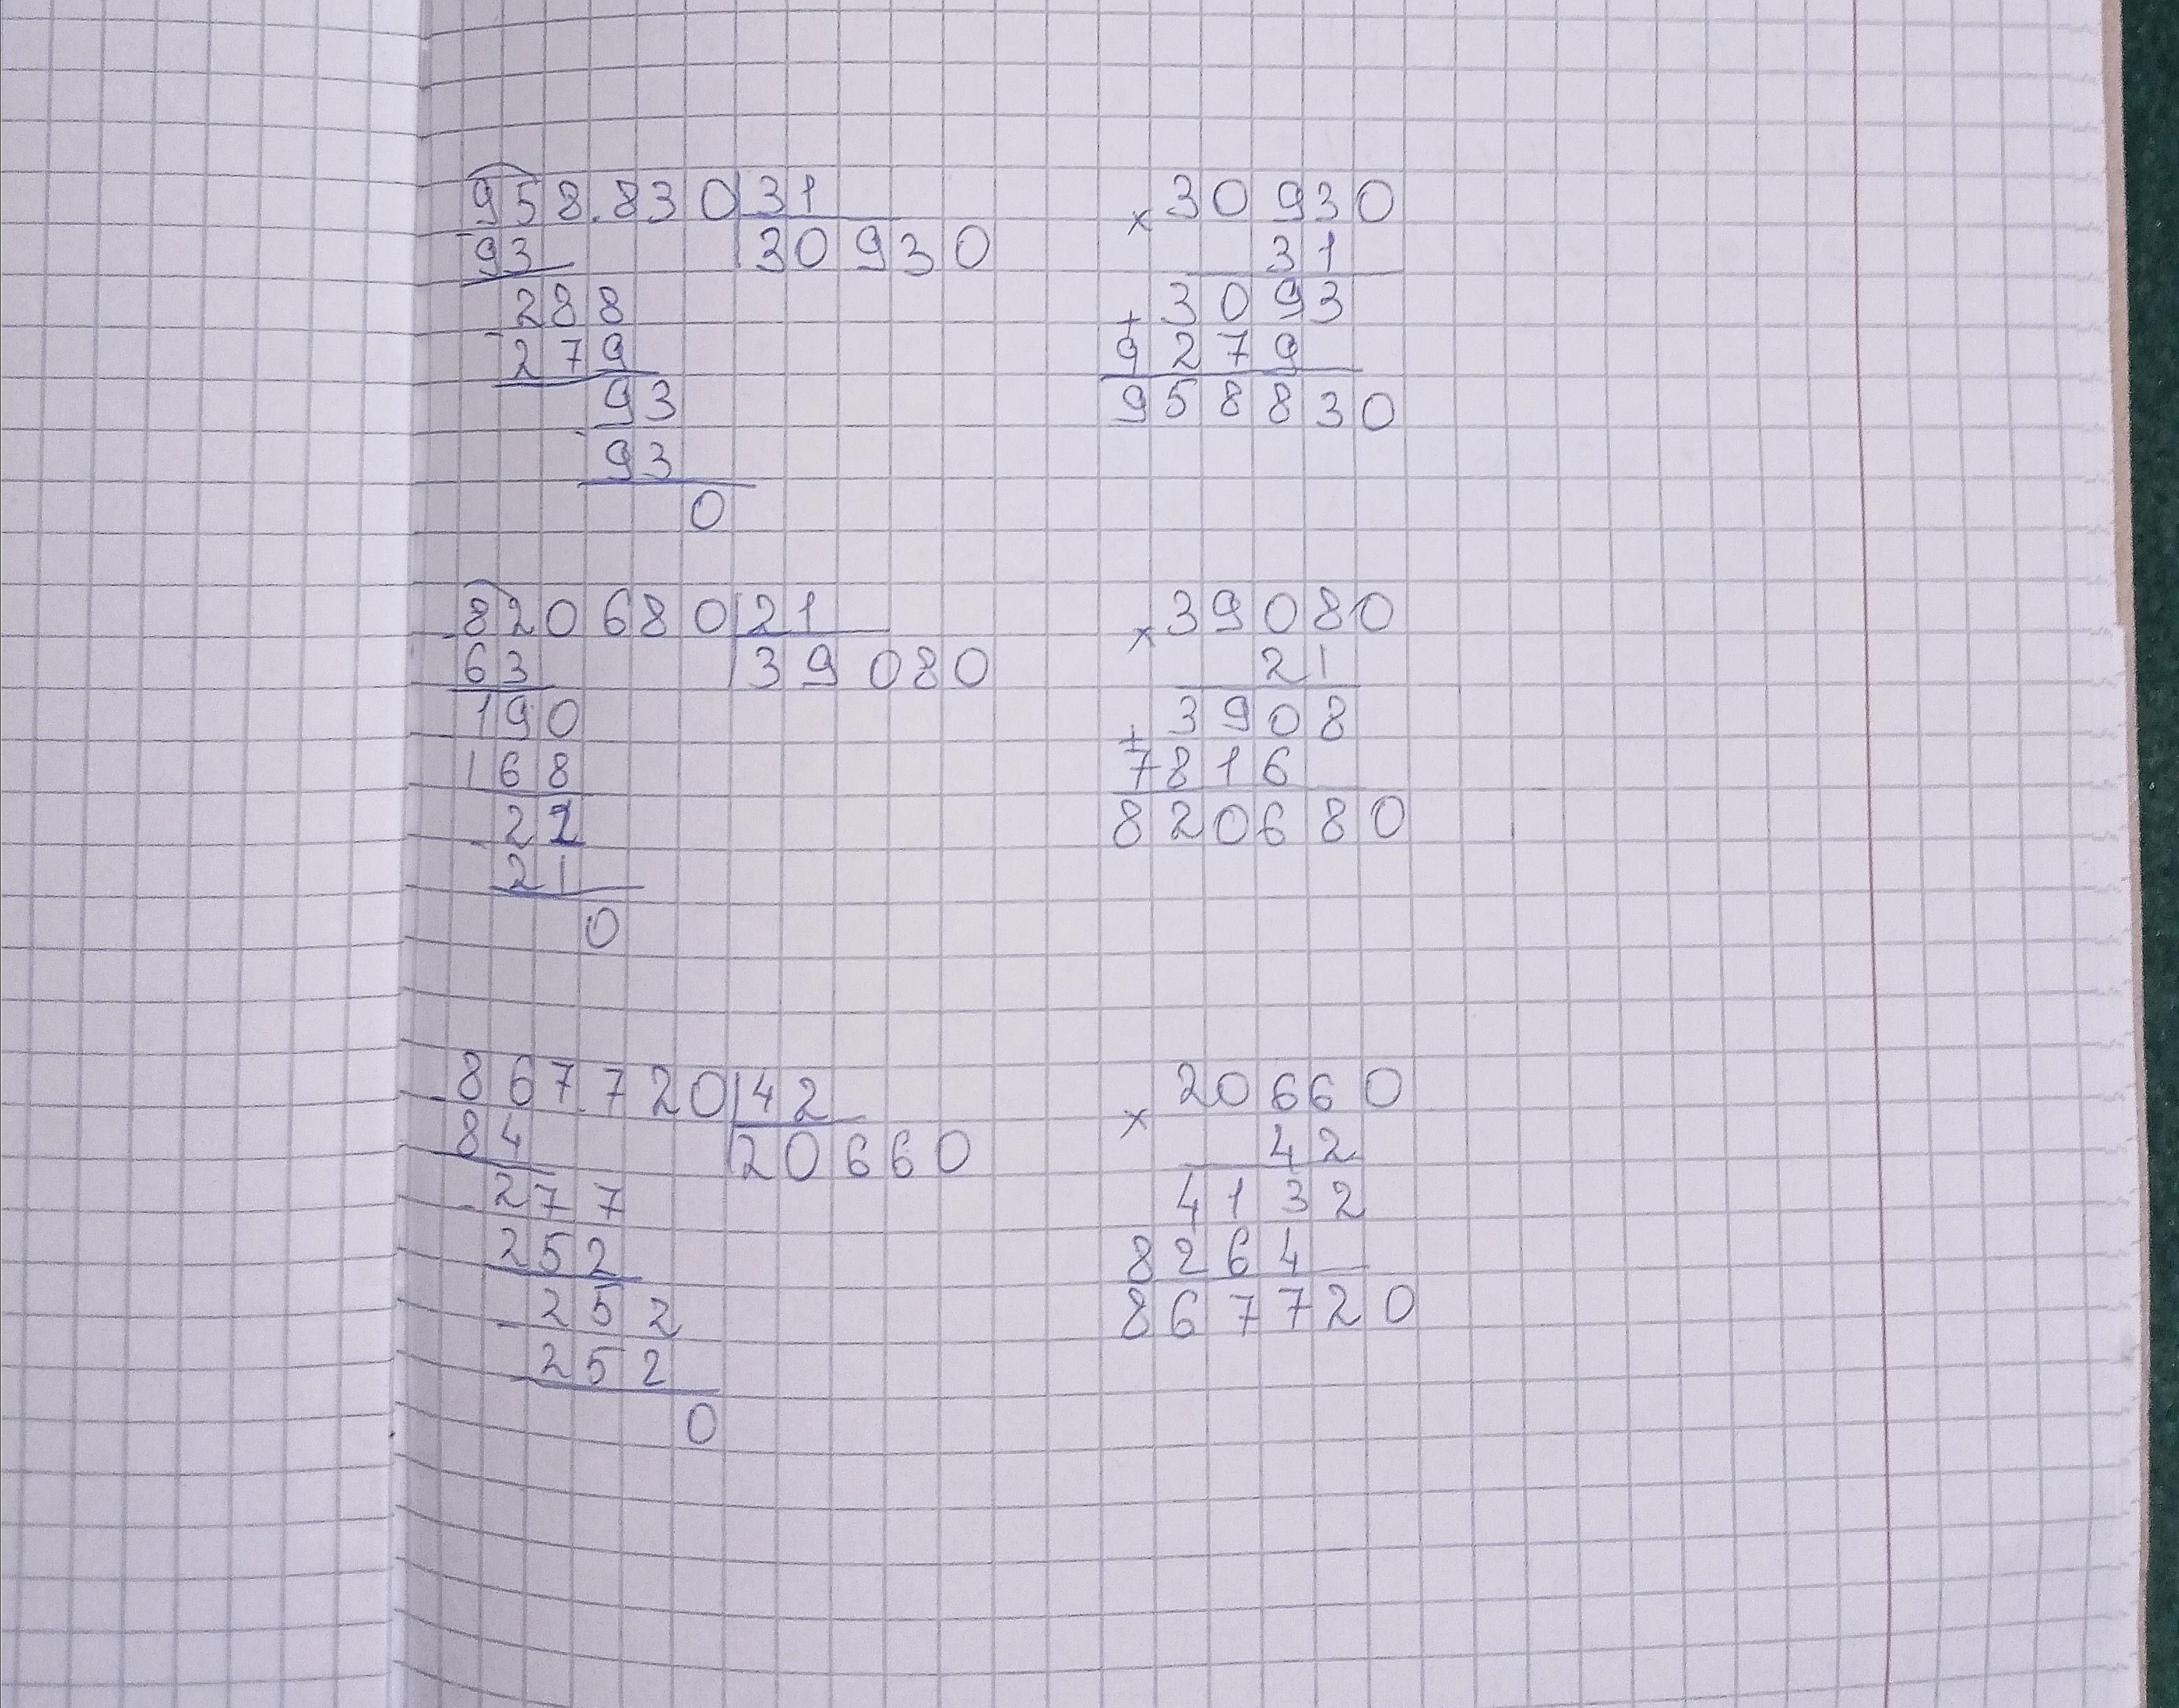 958.830 31
93 30930
288
279
93
93
0
× 30930
31
+ 3093
9279
958830
820680 21
63 39080
190
168
22
21
0
× 39080
21
+ 3908
7816
820680
867.720 42
84 20660
277
252
252
252
0
× 20660
42
4132
8264
867720